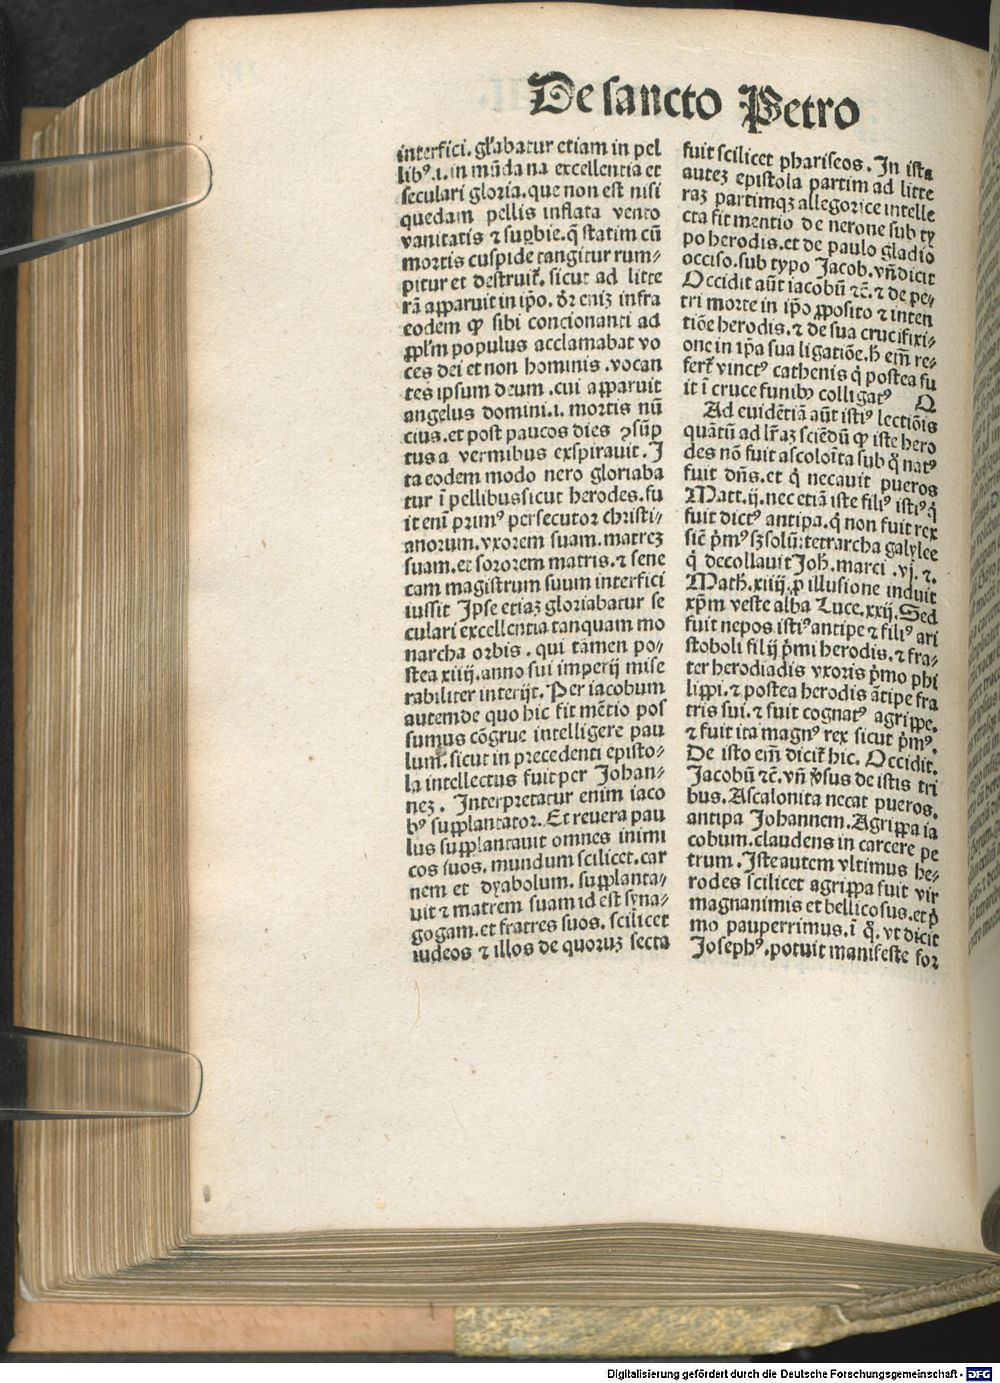 De sancto Petro
interfici. gl̕abatur etiam in pel
libꝰ .i. in mūdana excellentia et
seculari gloria. que non est nisi
quedam pellis inflata vento
vanitatis ⁊ suꝑbie. q̄ statim cū
mortis cuspide tangitur rum⸗
pitur et destruit̕. sicut ad litte
rā apparuit in ip̄o. dr̄ enīz infra
eodem ꝙ sibi concionanti ad
ppl̕m populus acclamabat vo
ces dei et non hominis . vocan
tes ipsum deum . cui apparuit
angelus domini .i. mortis nū
cius. et post paucos dies ꝯsūp
tus a vermibus exspirauit. I
ta eodem modo nero gloriaba
tur ī pellibus sicut herodes. fu
it enī primꝰ persecutor christi⸗
anorum. vxorem suam. matrez
suam. et sororem matris. ⁊ sene
cam magistrum suum interfici
iussit Ipse etiaz gloriabatur se
culari excellentia tanquam mo
narcha orbis . qui tamen po⸗
stea xiiij. anno sui imperij mise
rabiliter interijt. Per iacobum
autem de quo hic fit mētio pos
sumus cōgrue intelligere pau
lum. sicut in precedenti episto⸗
la intellectus fuit per Johan⸗
nez . Interpretatur enim iaco
bꝰ supplantator. Et reuera pau
lus supplantauit omnes inimi
cos suos. mundum scilicet. car
nem et dyabolum. supplanta⸗
uit ⁊ matrem suam id est syna⸗
gogam. et fratres suos. scilicet
iudeos ⁊ illos de quoruz secta
fuit scilicet phariseos. In ista
autez epistola partim ad litte
raz partimqz allegorice intelle
cta fit mentio de nerone sub ty
po herodis. et de paulo gladio
occiso. sub typo Jacob. vn̄ dicit
Occidit aūt iacobū ⁊c̄. ⁊ de pe⸗
tri morte in ip̄o ꝓposito ⁊ inten
tiōe herodis. ⁊ de sua crucifixi⸗
one in ip̄a sua ligatiōe. h̄ em̄ re⸗
fert̕ vinctꝰ cathenis q̇ postea fu
it ī cruce funibꝰ colligatꝰ Q
Ad euidētiā aūt istiꝰ lectiōis
quātū ad lr̄az sciēdū ꝙ iste hero
des nō fuit ascoloīta sub q̊ natꝰ
fuit dn̄s. et q̇ necauit pueros
Matt. ij. nec etiā iste filiꝰ istiꝰ q̇
fuit dictꝰ antipa. q̇ non fuit rex
sic̄ p̄mꝰ sz solū: tetrarcha galylee
q̇ decollauit Joh̄. marci . vj. ⁊.
Math. xiiij. p̄ illusione induit
xp̄m veste alba Luce. xxij. Sed
fuit nepos istiꝰ antipe ⁊ filiꝰ ari
stoboli filij p̄mi herodis. ⁊ fra⸗
ter herodiadis vxoris p̄mo phi
lippi. ⁊ postea herodis ātipe fra
tris sui. ⁊ fuit cognatꝰ agrippe.
⁊ fuit ita magnꝰ rex sicut p̄mꝰ.
De isto em̄ dicit̕ hic. Occidit.
Jacobū ⁊c̄. vn̄ v̓sus de istis tri
bus. Ascalonita necat pueros.
antipa Johannem. Agrippa ia
cobum. claudens in carcere pe
trum. Iste autem vltimus he⸗
rodes scilicet agrippa fuit vir
magnanimis et bellicosus. et p̄
mo pauperrimus. ī q̊. vt dicit
Josephꝰ. potuit manifeste for
Digitalisierung gefördert durch die Deutsche Forschungsgemeinschaft - DFG